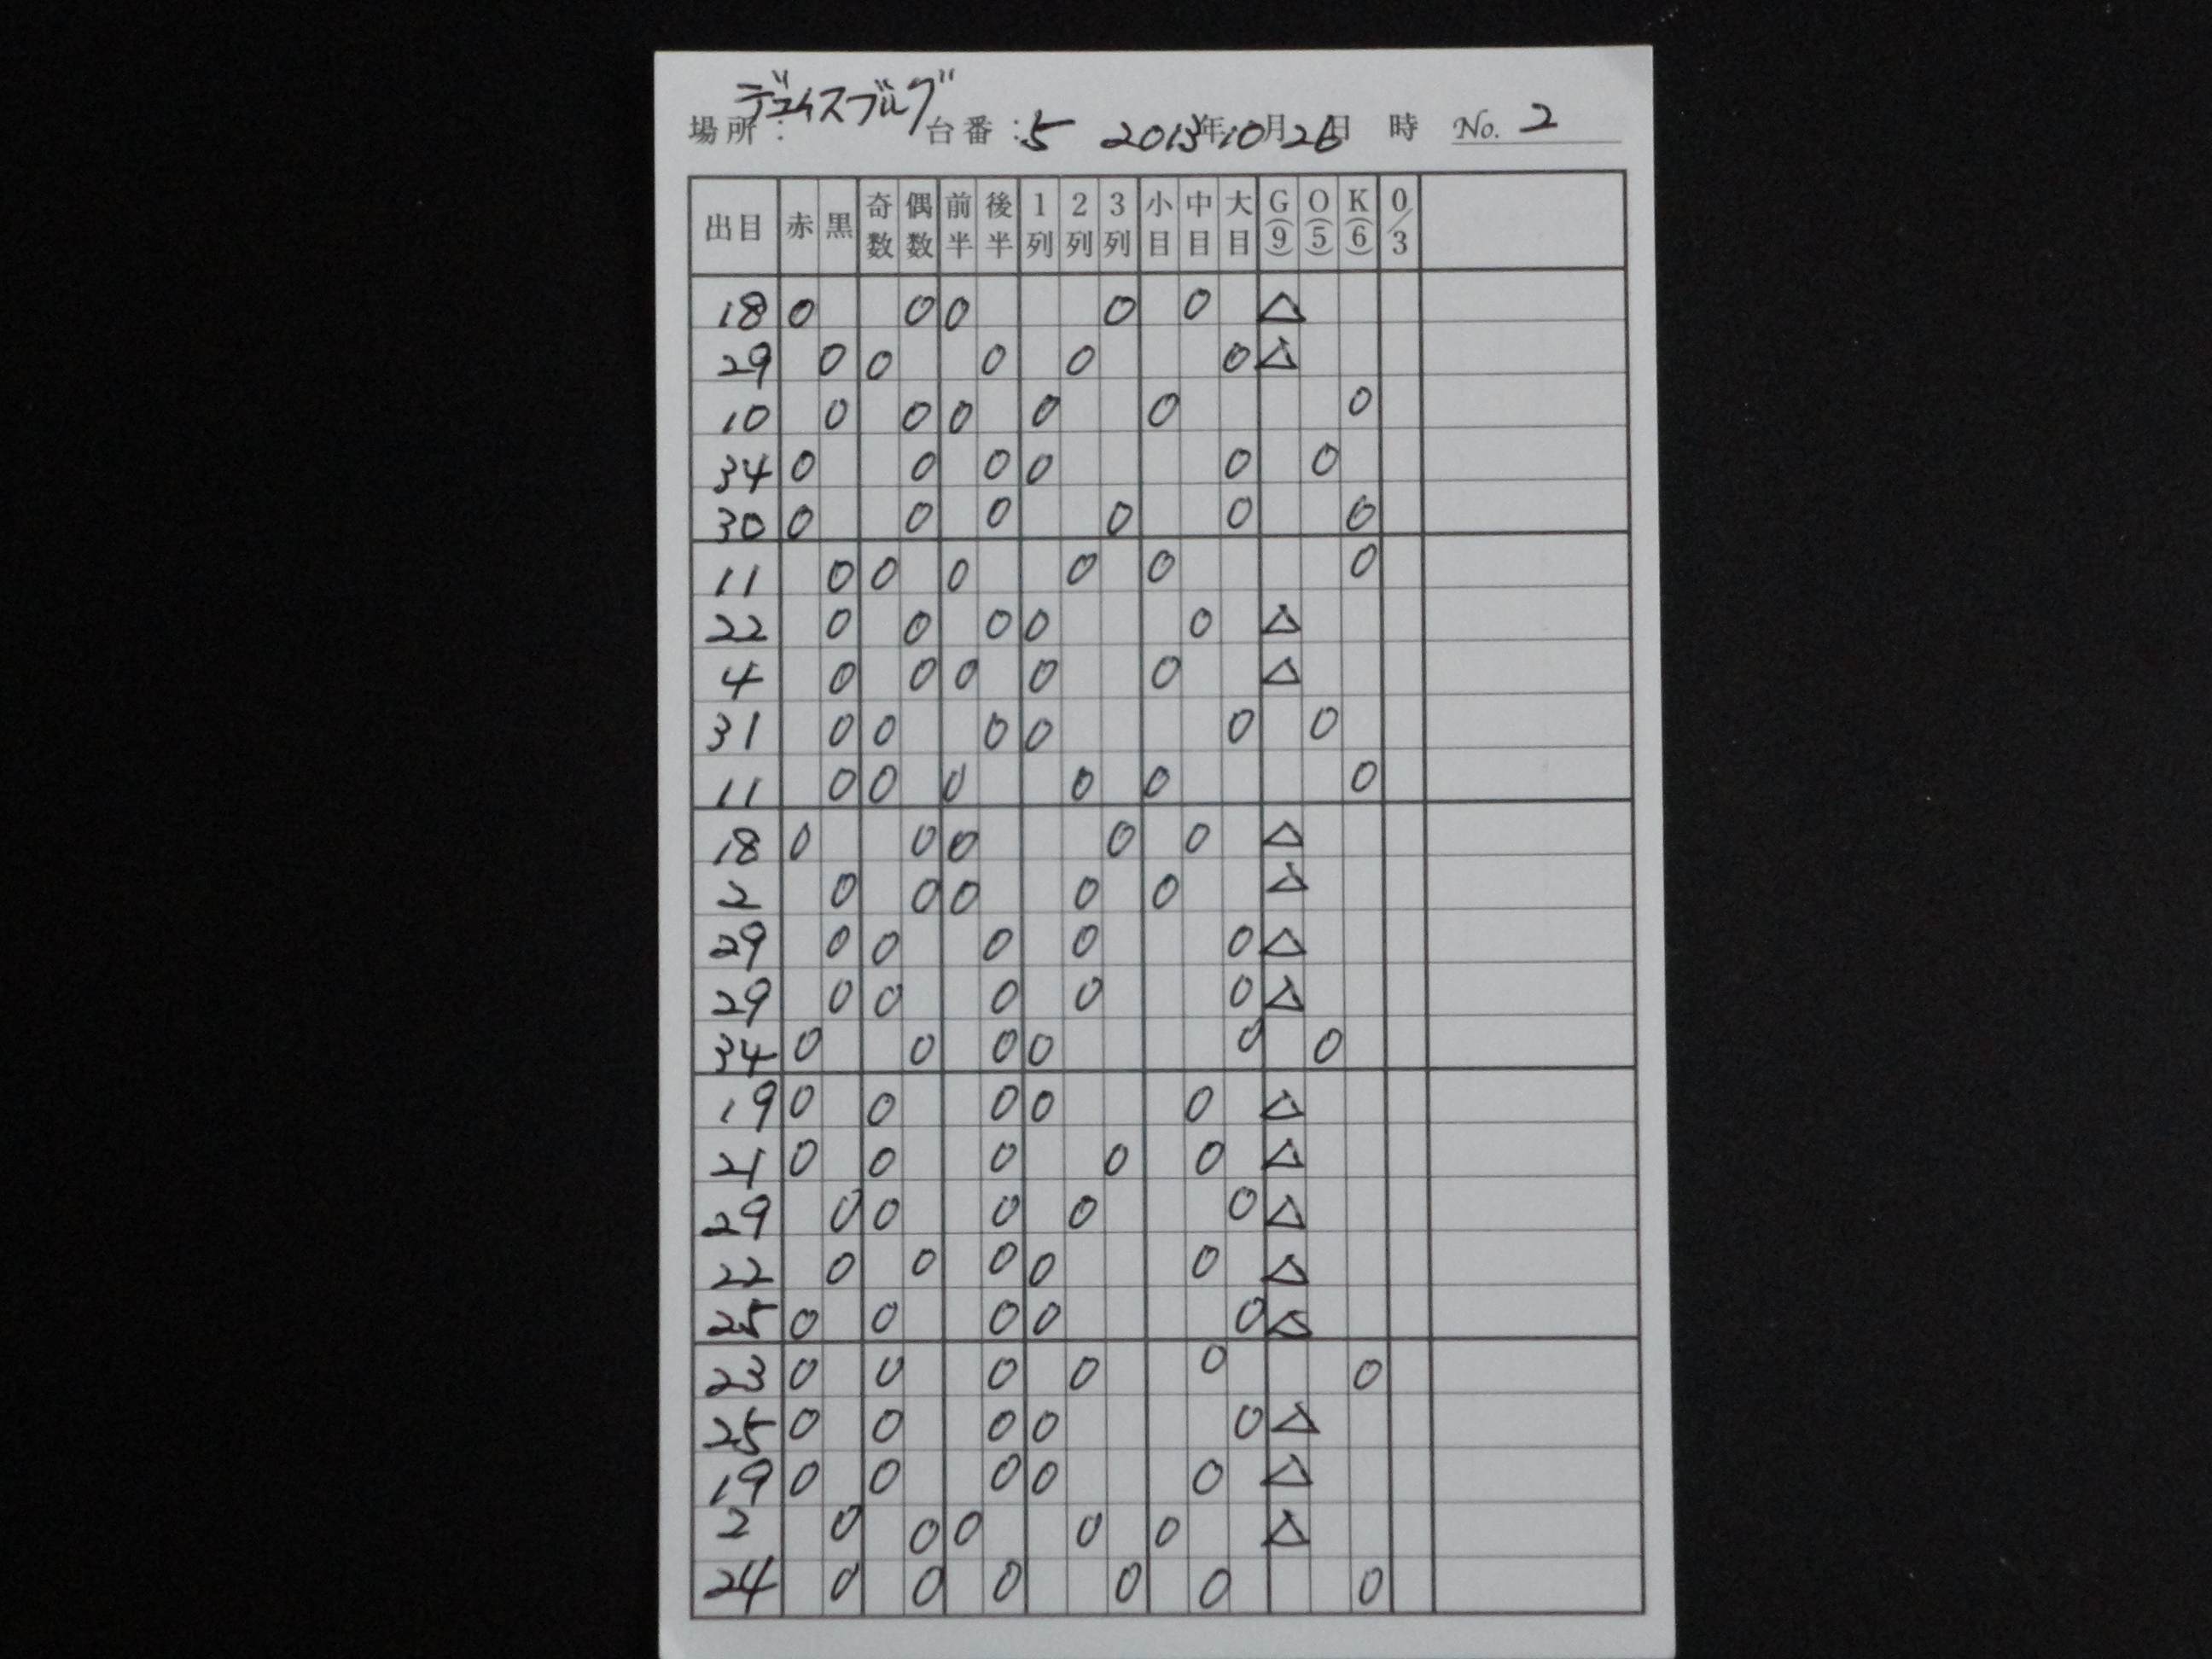 場所：デュイスブルグ 台番：5 2013年10月26日 時 No. 2
出目 赤 黒 奇数 偶数 前半 後半 1列 2列 3列 小目 中目 大目 G(9) O(5) K(6) 0/3
18 0 0 0 0 0 △
29 0 0 0 0 0 △
10 0 0 0 0 0 0
34 0 0 0 0 0 0
30 0 0 0 0 0 0
11 0 0 0 0 0 0
22 0 0 0 0 0 △
4 0 0 0 0 0 △
31 0 0 0 0 0 0
11 0 0 0 0 0 0
18 0 0 0 0 0 △
2 0 0 0 0 0 △
29 0 0 0 0 0 △
29 0 0 0 0 0 △
34 0 0 0 0 0 0
19 0 0 0 0 0 △
21 0 0 0 0 0 △
29 0 0 0 0 0 △
22 0 0 0 0 0 △
25 0 0 0 0 0 △
23 0 0 0 0 0 0
25 0 0 0 0 0 △
19 0 0 0 0 0 △
2 0 0 0 0 0 △
24 0 0 0 0 0 0